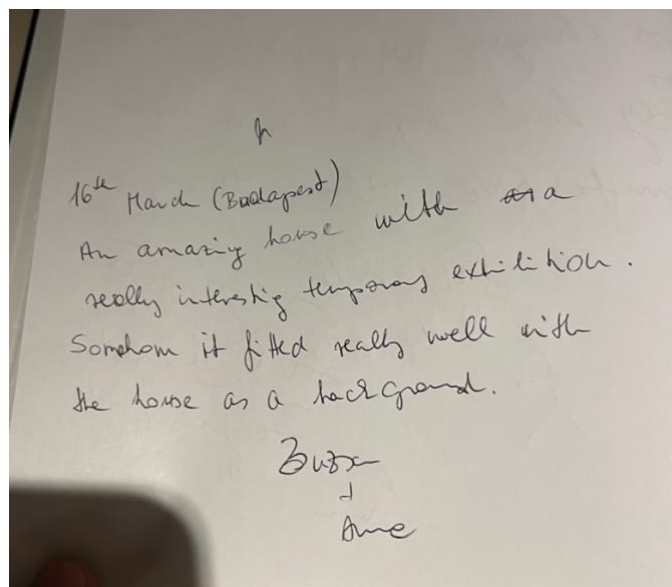 16th March (Budapest)
An amazing house with a
really interesting temporary exhibition.
Somehow it fitted really well with
the house as a background.
Zuzsa
+